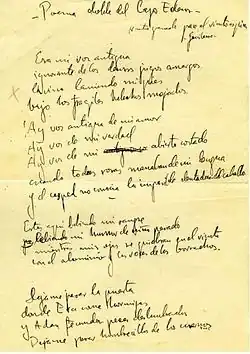 Poema doble del Lago Edem
nuestro ganado pace, el viento espira
Garcilaso
Era mi voz antigua
ignorante de los densos jugos amargos
la que vino lamiendo mis pies
bajo los frágiles helechos mojados.
¡Ay voz antigua de mi amor
Ay voz de mi verdad
Ay voz de mi abierto costado
cuando todas las rosas manaban de mi lengua
y el césped no conocía la impasible dentadura del caballo
Estás aquí bebiendo mi sangre
bebiendo mi humor de niño pesado
mientras mis ojos se quiebran en el viento
con el aluminio y las voces de los borrachos.
Déjame pasar la puerta
donde Eva come hormigas
y Adán fecunda peces deslumbrados
Déjame pasar hombrecillo de los cuernos